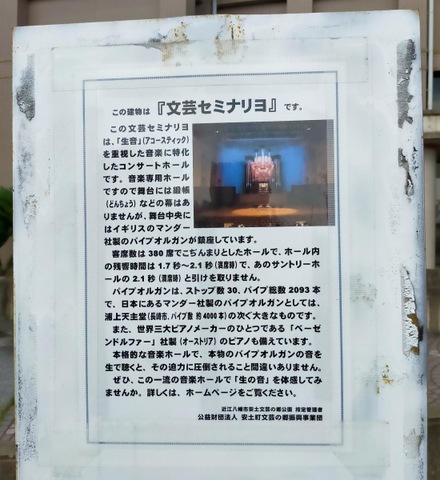 この建物は『文芸セミナリヨ』です。
この文芸セミナリヨ
は、「生音」(アコースティック)
を重視した音楽に特化
したコンサートホール
です。音楽専用ホール
ですので舞台には緞帳
(どんちょう)などの幕はあ
りませんが、舞台中央に
はイギリスのマンダー
社製のパイプオルガンが鎮座しています。
客席数は380席でこぢんまりとしたホールで、ホール内
の残響時間は1.7秒~2.1秒(満席時)で、あのサントリーホ
ールの2.1秒(満席時)と引けを取りません。
パイプオルガンは、ストップ数30、パイプ総数2093本
で、日本にあるマンダー社製のパイプオルガンとしては、
浦上天主堂(長崎市、パイプ数 約4000本)の次ぐ大きなものです。
また、世界三大ピアノメーカーのひとつである「ベーゼ
ンドルファー」社製(オーストリア)のピアノも備えています。
本格的な音楽ホールで、本物のパイプオルガンの音を
生で聴くと、その迫力に圧倒されること間違いありません。
ぜひ、この一流の音楽ホールで「生の音」を体感してみ
ませんか。詳しくは、ホームページをご覧ください。
近江八幡市安土文芸の郷公園 指定管理者
公益財団法人 安土町文芸の郷振興事業団